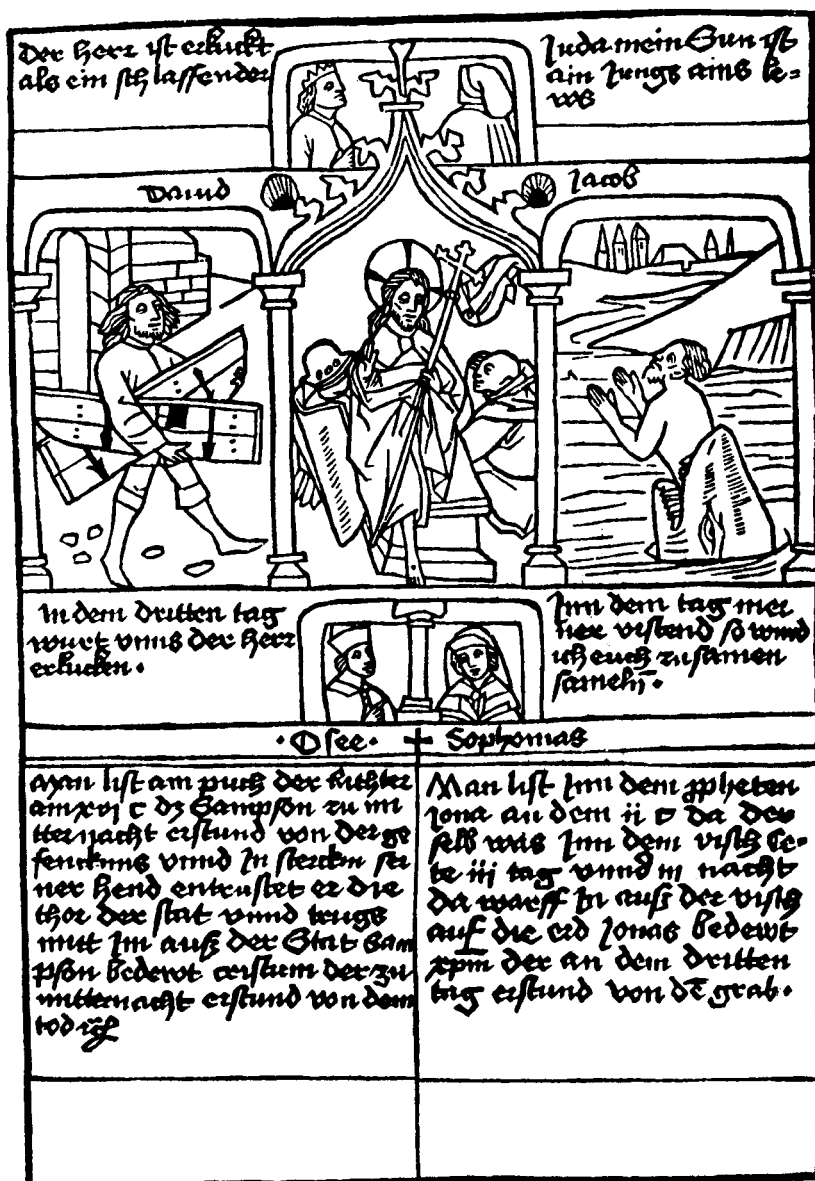 Der herr ist erkuckt
als ein schlaffender
Juda mein Sun ist
ain Jungs ains le-
ws
Dauid
Jacob
In dem dritten tag
wurt vnns der herr
erkucken.
Inn dem tag mei
ner vstend so wird
ich euch zusamen
sameln̄.
·Osee·
Sophonias
Man list am puch der Richter
am xvj c dz Sampson zu mi
tternacht erstund von der ge
fencknus vnnd In sterckin sei
ner hend entrustet er die
thor der stat vnnd trugs
mitt Im auß der Stat Sam
pson bedewt cristum der zu
mitternacht erstund von dem
tod
Man list Inn dem ppheten
Jona an dem ij c da der
selb was Inn dem visch le-
te iij tag vnnd iij nacht
da warff In auß der visch
auf die erd Jonas bedewt
xpm̄ der an dem dritten
tag erstund von dē grab.